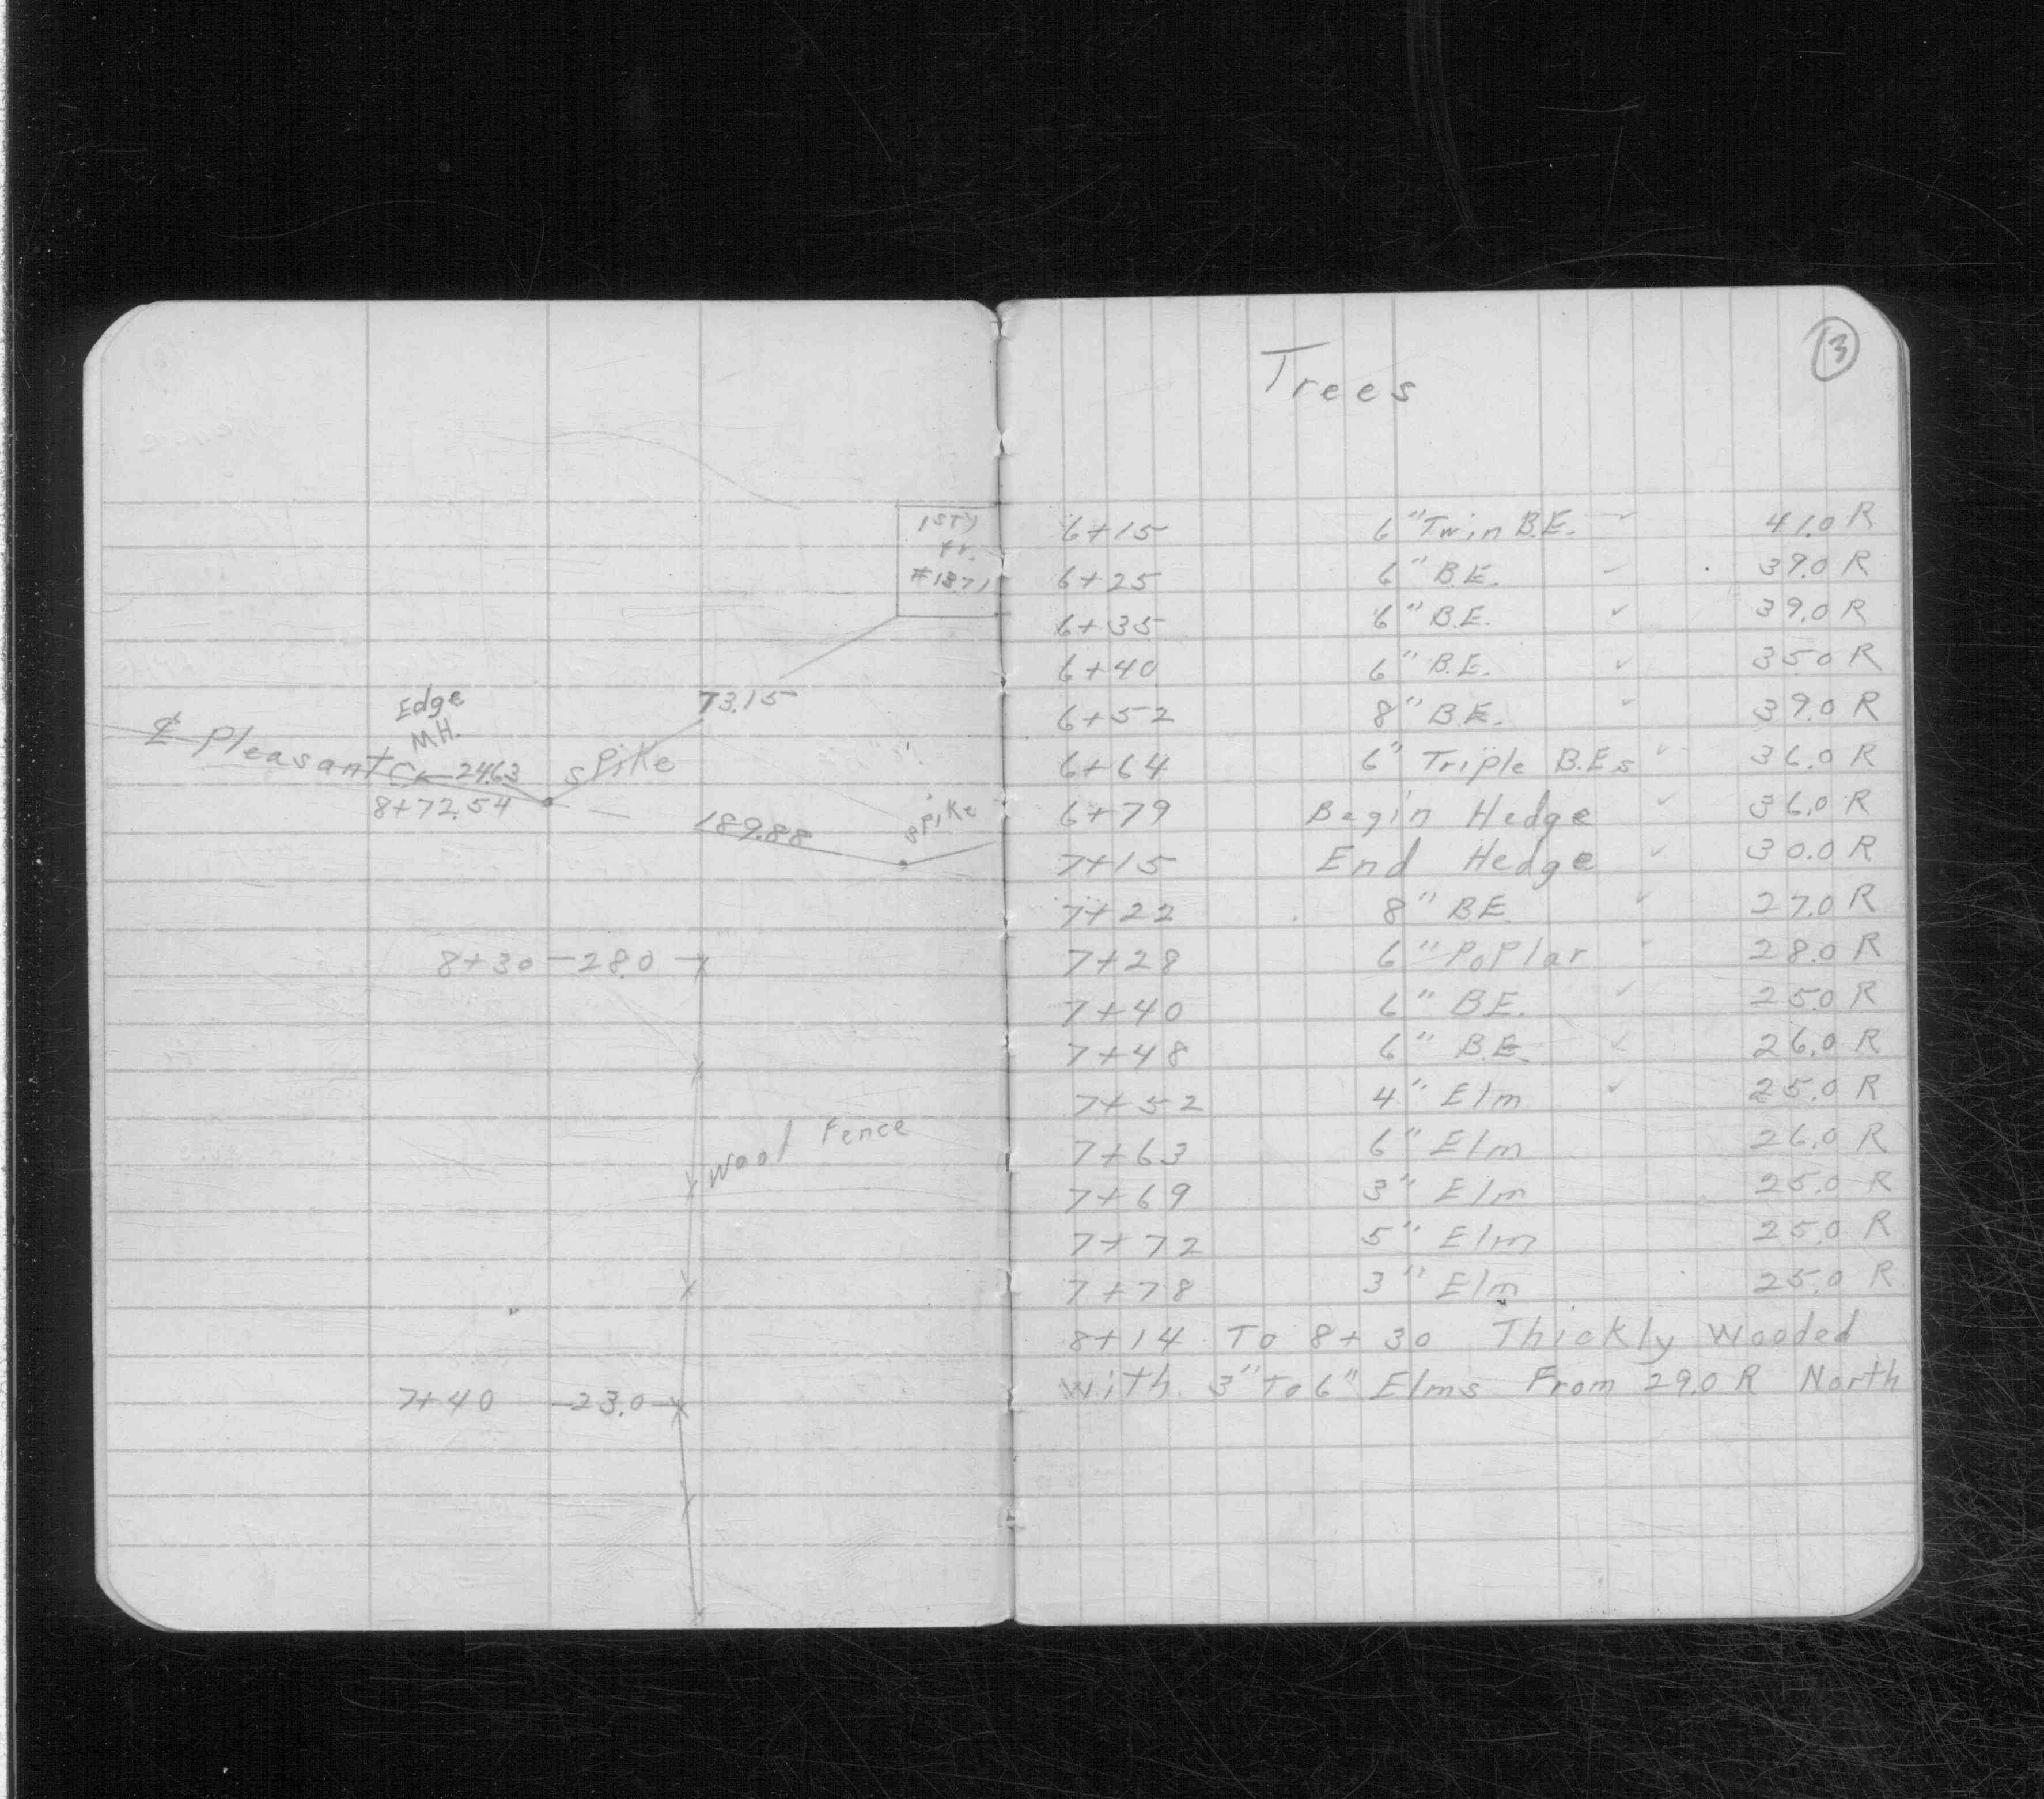 1 STY
Fr.
#1371
73.15
Edge
MH.
℄ Pleasant
24.63
spike
8+72.54
189.88
spike
8+30 - 28.0
Wood Fence
7+40 - 23.0
3
Trees
6+15 6" Twin B.E. ✓ 41.0 R
6+25 6" B.E. ✓ 39.0 R
6+35 6" B.E. ✓ 39.0 R
6+40 6" B.E. ✓ 35.0 R
6+52 8" B.E. ✓ 39.0 R
6+64 6" Triple B.E.s ✓ 36.0 R
6+79 Begin Hedge ✓ 36.0 R
7+15 End Hedge ✓ 30.0 R
7+22 8" B.E. ✓ 27.0 R
7+28 6" Poplar ✓ 28.0 R
7+40 6" B.E. ✓ 25.0 R
7+48 6" B.E. ✓ 26.0 R
7+52 4" Elm ✓ 25.0 R
7+63 6" Elm 26.0 R
7+69 3" Elm 25.0 R
7+72 5" Elm 25.0 R
7+78 3" Elm 25.0 R
8+14 To 8+30 Thickly Wooded
With 3" To 6" Elms From 29.0 R North